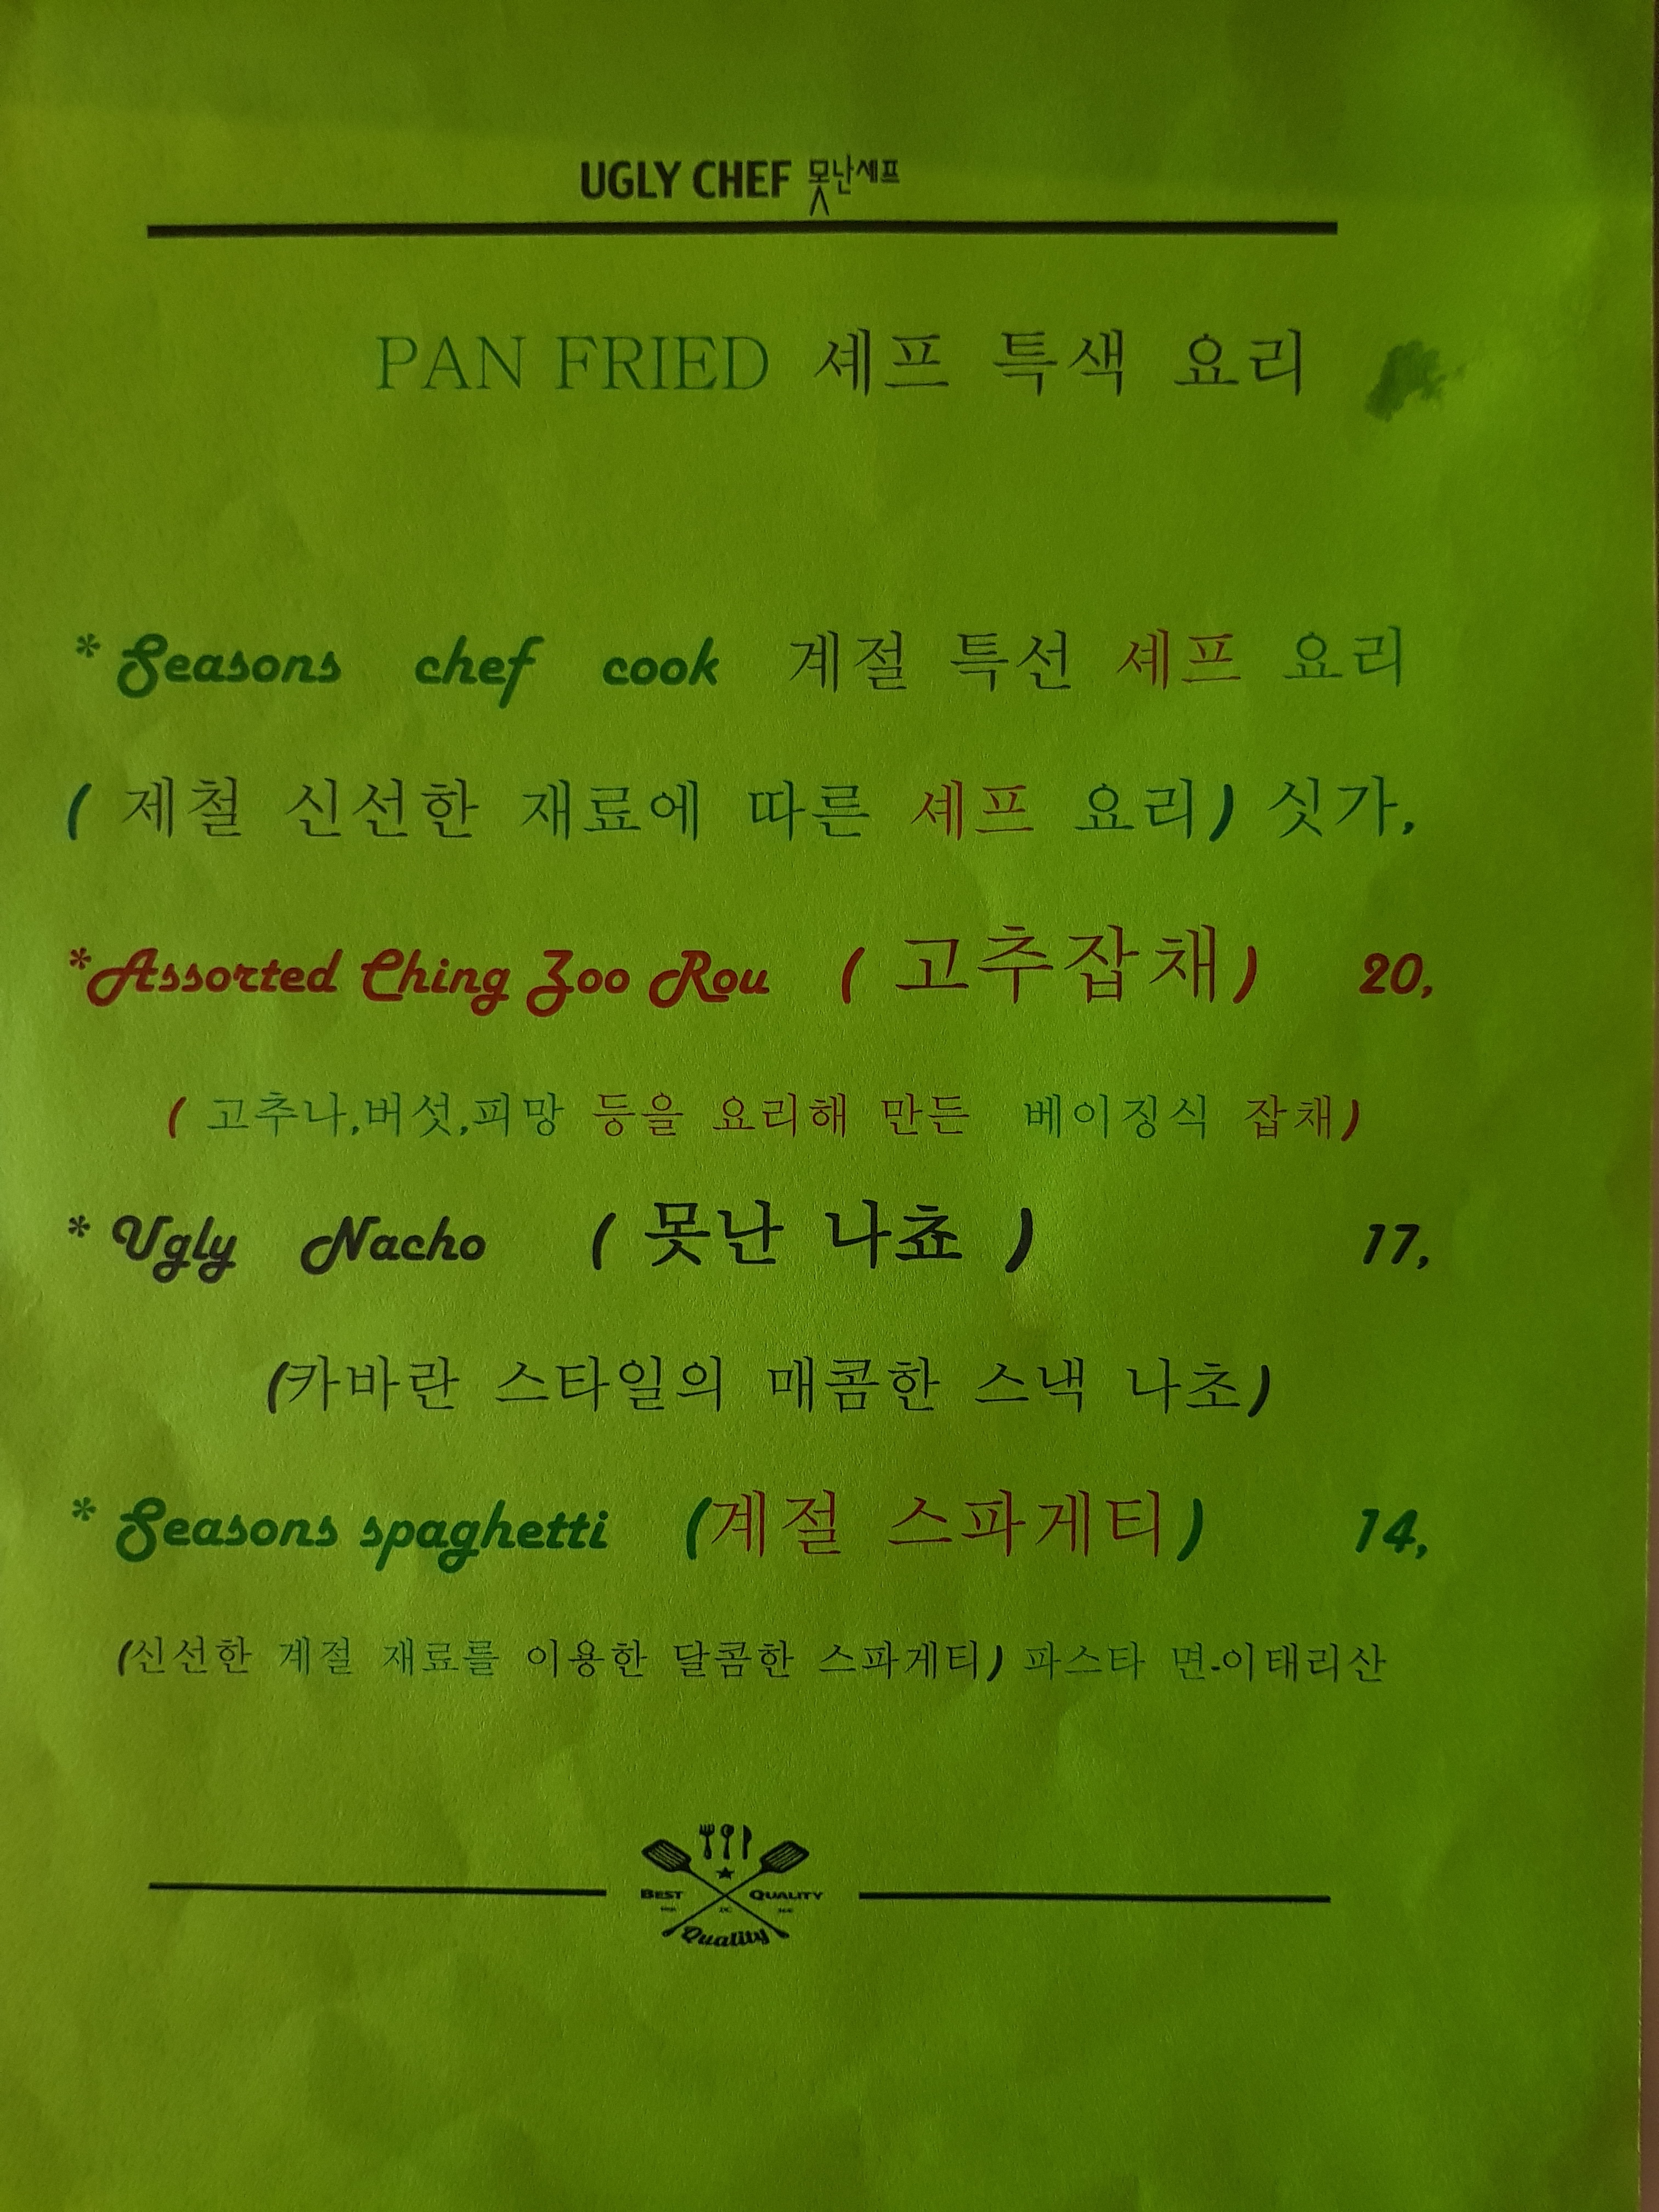 UGLY CHEF 못난셰프
PAN FRIED 셰프 특색 요리
* Seasons chef cook 계절 특선 셰프 요리
( 제철 신선한 재료에 따른 셰프 요리) 싯가,
*Assorted Ching Zoo Rou ( 고추잡채) 20,
( 고추나,버섯,피망 등을 요리해 만든 베이징식 잡채)
* Ugly Nacho ( 못난 나쵸 ) 17,
(카바란 스타일의 매콤한 스낵 나초)
* Seasons spaghetti (계절 스파게티) 14,
(신선한 계절 재료를 이용한 달콤한 스파게티) 파스타 면-이태리산
BEST QUALITY
Quality